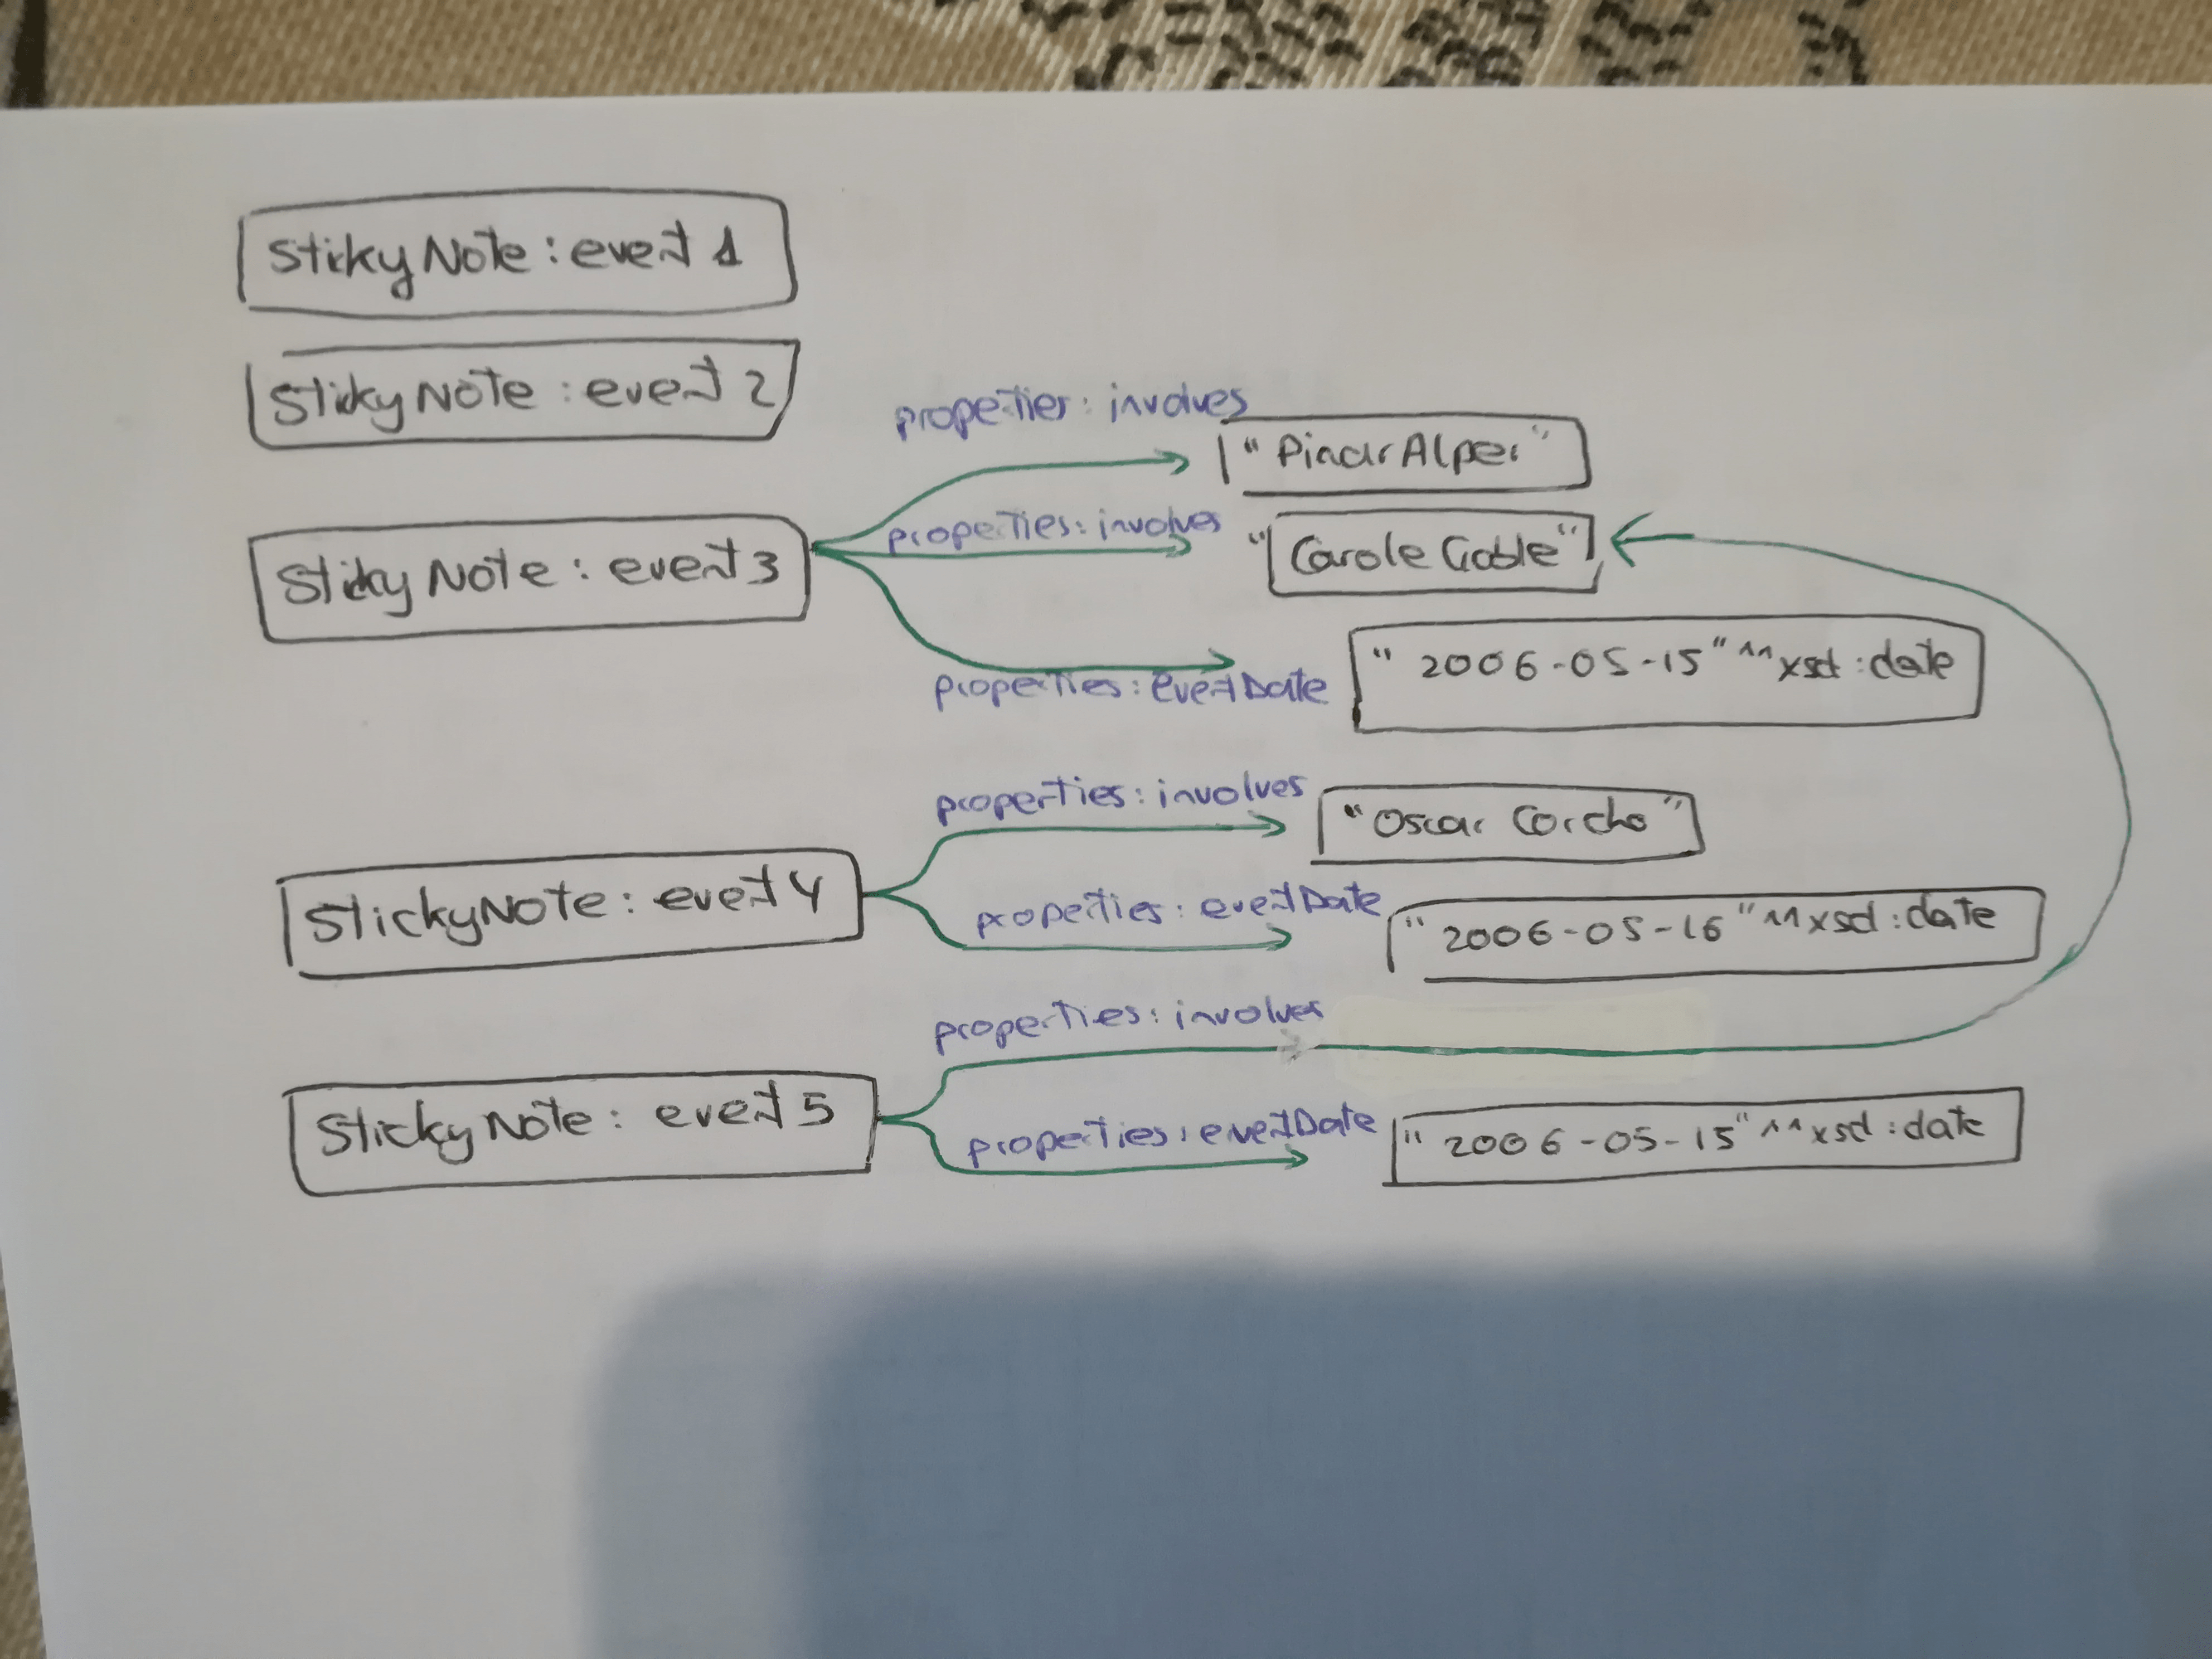 StickyNote : event 1
StickyNote : event 2
properties : involves
"Pinar Alper"
StickyNote : event 3
properties : involves
"Carole Goble"
properties : eventDate
"2006-05-15"^^xsd:date
properties : involves
"Oscar Corcho"
StickyNote : event 4
properties : eventDate
"2006-05-16"^^xsd:date
properties : involves
StickyNote : event 5
properties : eventDate
"2006-05-15"^^xsd:date